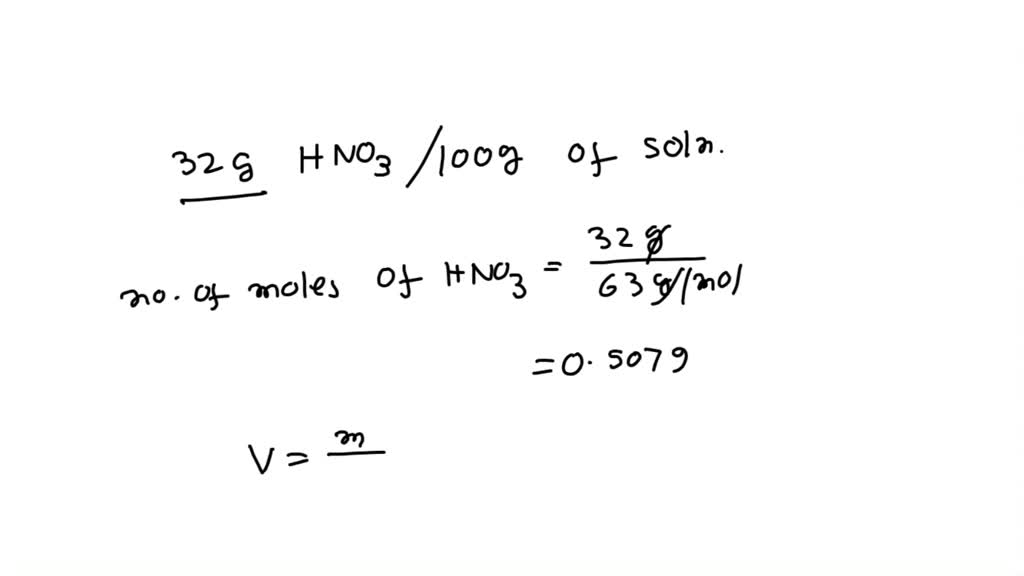 32 g HNO3 /100g of soln.
no. of moles of HNO3 = 32 g / 63 g/mol
= 0.5079
V = m